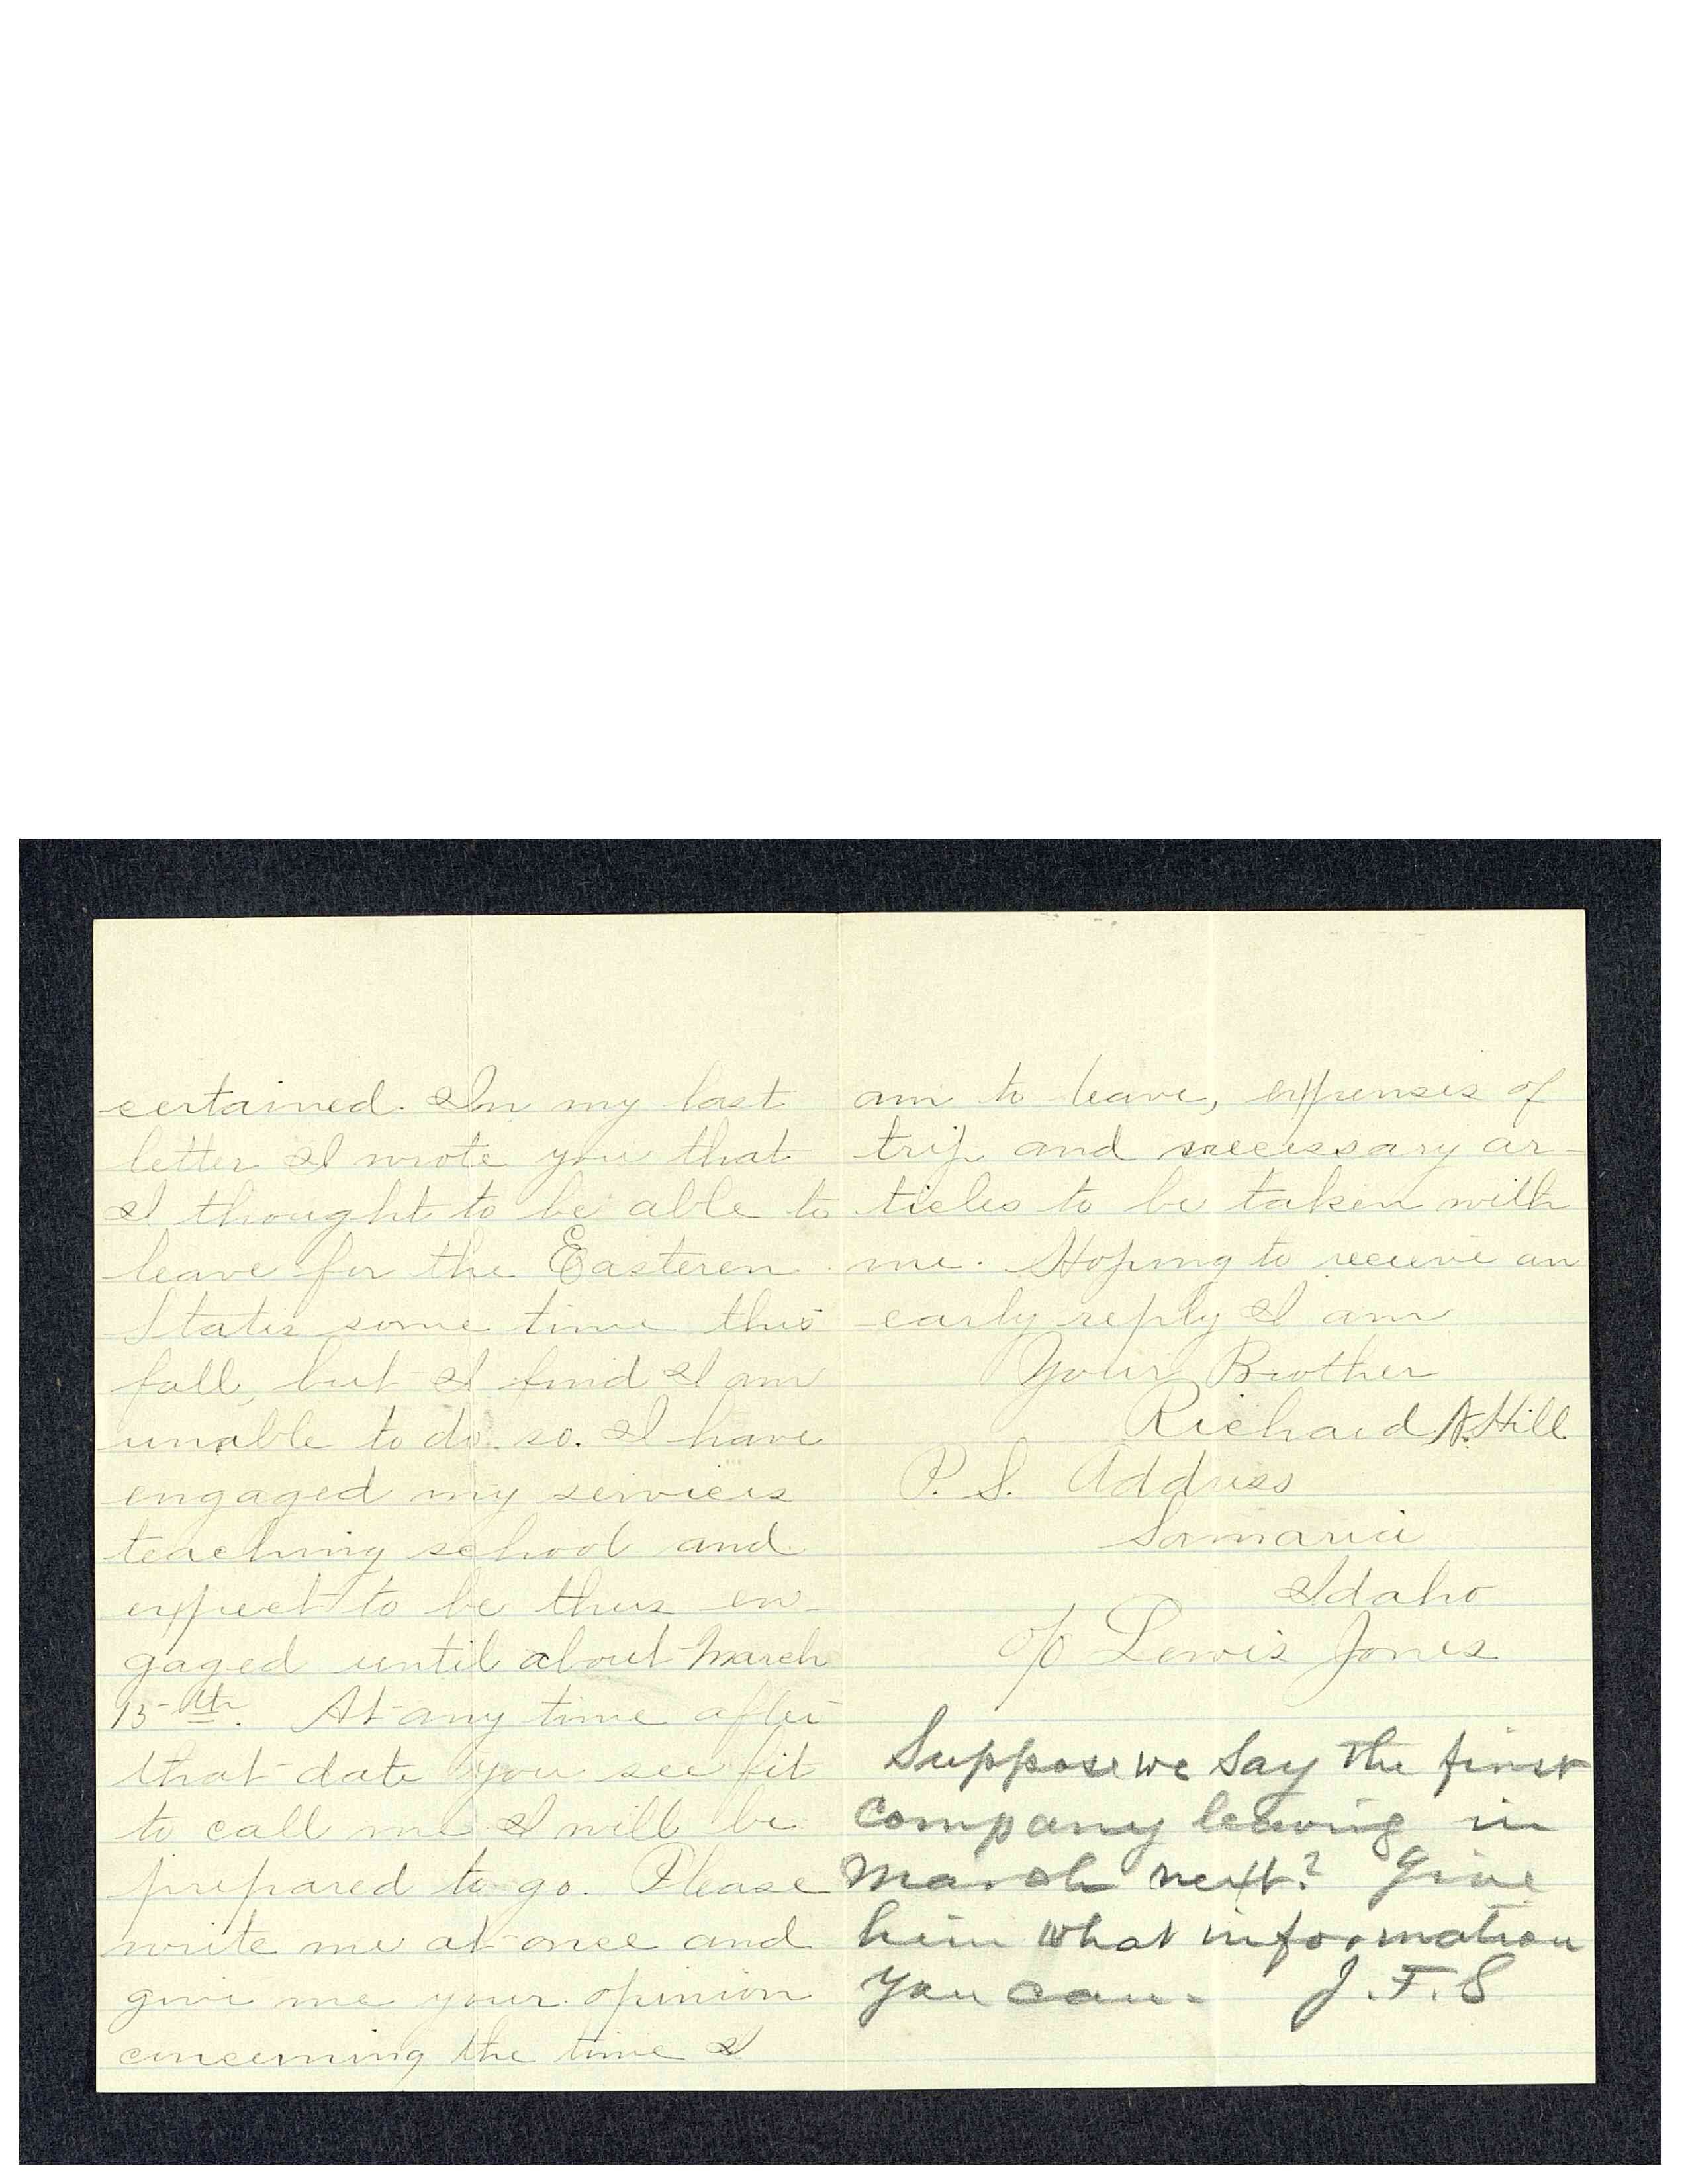 certained. In my last
letter I wrote you that
I thought to be able to
leave for the Easteren
States some time this
fall, but I find I am
unable to do so. I have
engaged my services
teaching school and
expect to be thus en-
gaged until about March
15th. At any time after
that date you see fit
to call me I will be
prepared to go. Please
write me at once and
give me your opinion
concerning the time I
am to leave, expenses of
trip and necessary ar-
ticles to be taken with
me. Hoping to receive an
early reply I am
Your Brother
Richard A. Hill
P.S. Address
Samaria
Idaho
c/o Lewis Jones
Suppose we say the first
company leaving in
March next? Give
him what information
you can. J.F.S